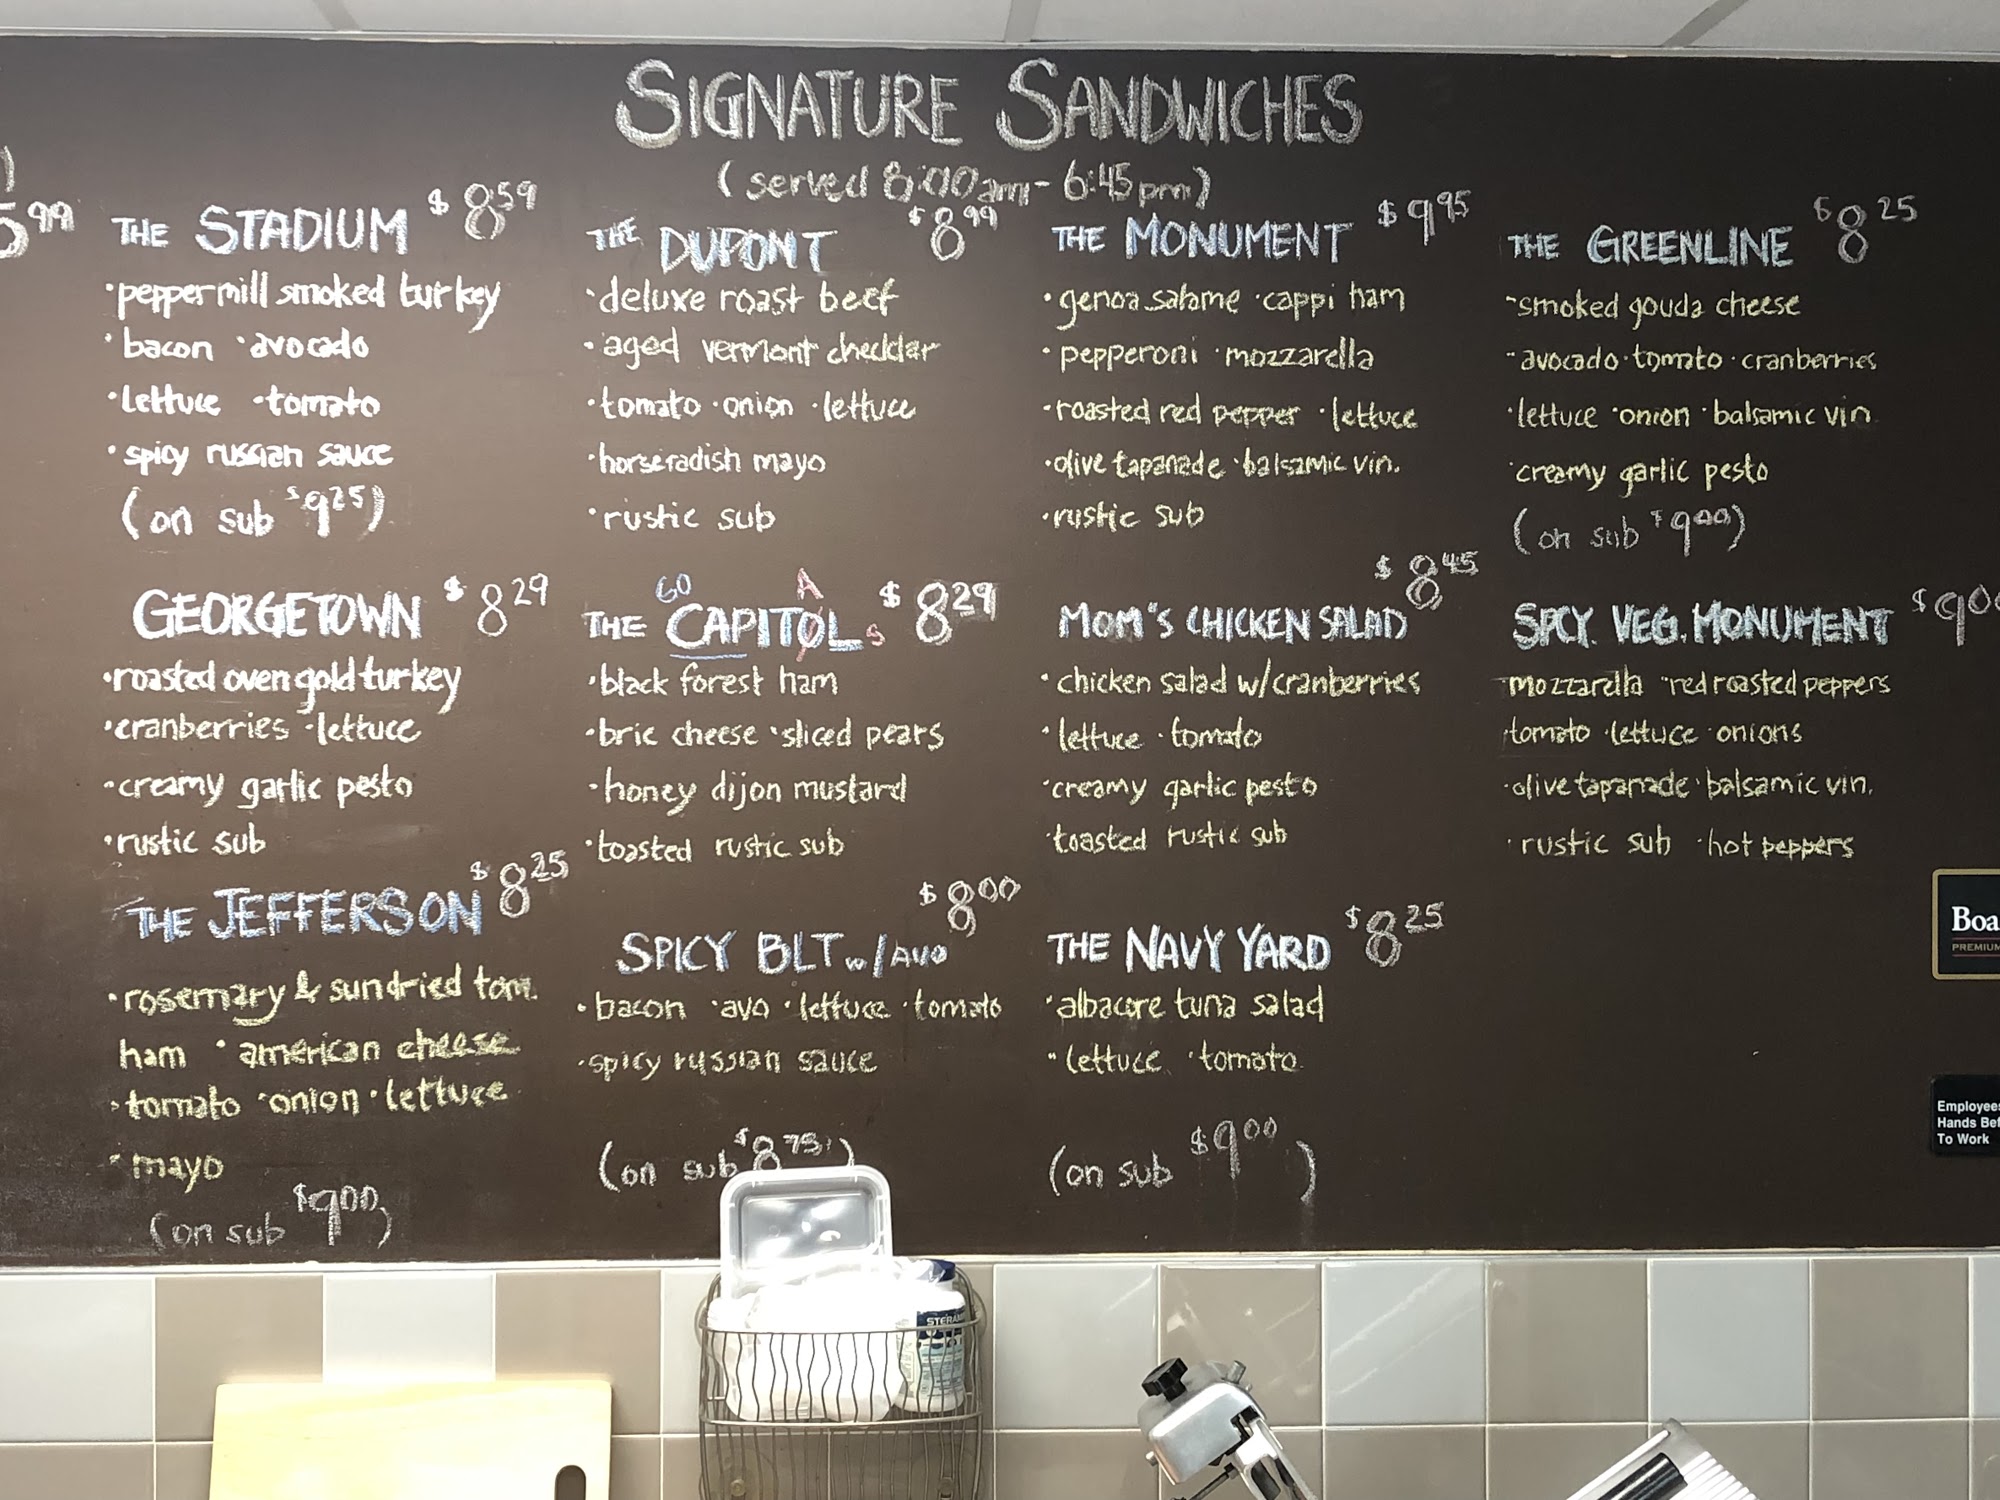 SIGNATURE SANDWICHES
(served 8:00am - 6:45pm)
5 99
THE STADIUM $8 59
·peppermill smoked turkey
·bacon ·avocado
·lettuce ·tomato
·spicy russian sauce
(on sub $9 25)
THE DUPONT $8 99
·deluxe roast beef
·aged vermont cheddar
·tomato ·onion ·lettuce
·horseradish mayo
·rustic sub
THE MONUMENT $9 95
·genoa salame ·cappi ham
·pepperoni ·mozzarella
·roasted red pepper ·lettuce
·olive tapanade ·balsamic vin.
·rustic sub
THE GREENLINE $8 25
-smoked gouda cheese
·avocado ·tomato ·cranberries
·lettuce ·onion ·balsamic vin
·creamy garlic pesto
(on sub $9 00)
GEORGETOWN $8 29
·roasted oven gold turkey
·cranberries ·lettuce
·creamy garlic pesto
·rustic sub
GO A
THE CAPITOLS $8 29
·black forest ham
·brie cheese ·sliced pears
·honey dijon mustard
·toasted rustic sub
MOM"S CHICKEN SALAD $8 45
·chicken salad w/cranberries
·lettuce ·tomato
·creamy garlic pesto
·toasted rustic sub
SPCY. VEG. MONUMENT $9 00
mozzarella ·red roasted peppers
tomato ·lettuce ·onions
·olive tapanade ·balsamic vin.
·rustic sub ·hot peppers
THE JEFFERSON $8 25
·rosemary & sundried tom.
ham ·american cheese
·tomato ·onion ·lettuce
·mayo
(on sub $9 00)
SPICY BLT w/AVO $8 00
·bacon ·avo ·lettuce ·tomato
·spicy russian sauce
(on sub $8 75)
THE NAVY YARD $8 25
·albacore tuna salad
·lettuce ·tomato
(on sub $9 00)
Boa
PREMIUM
Employees
Hands Bef
To Work